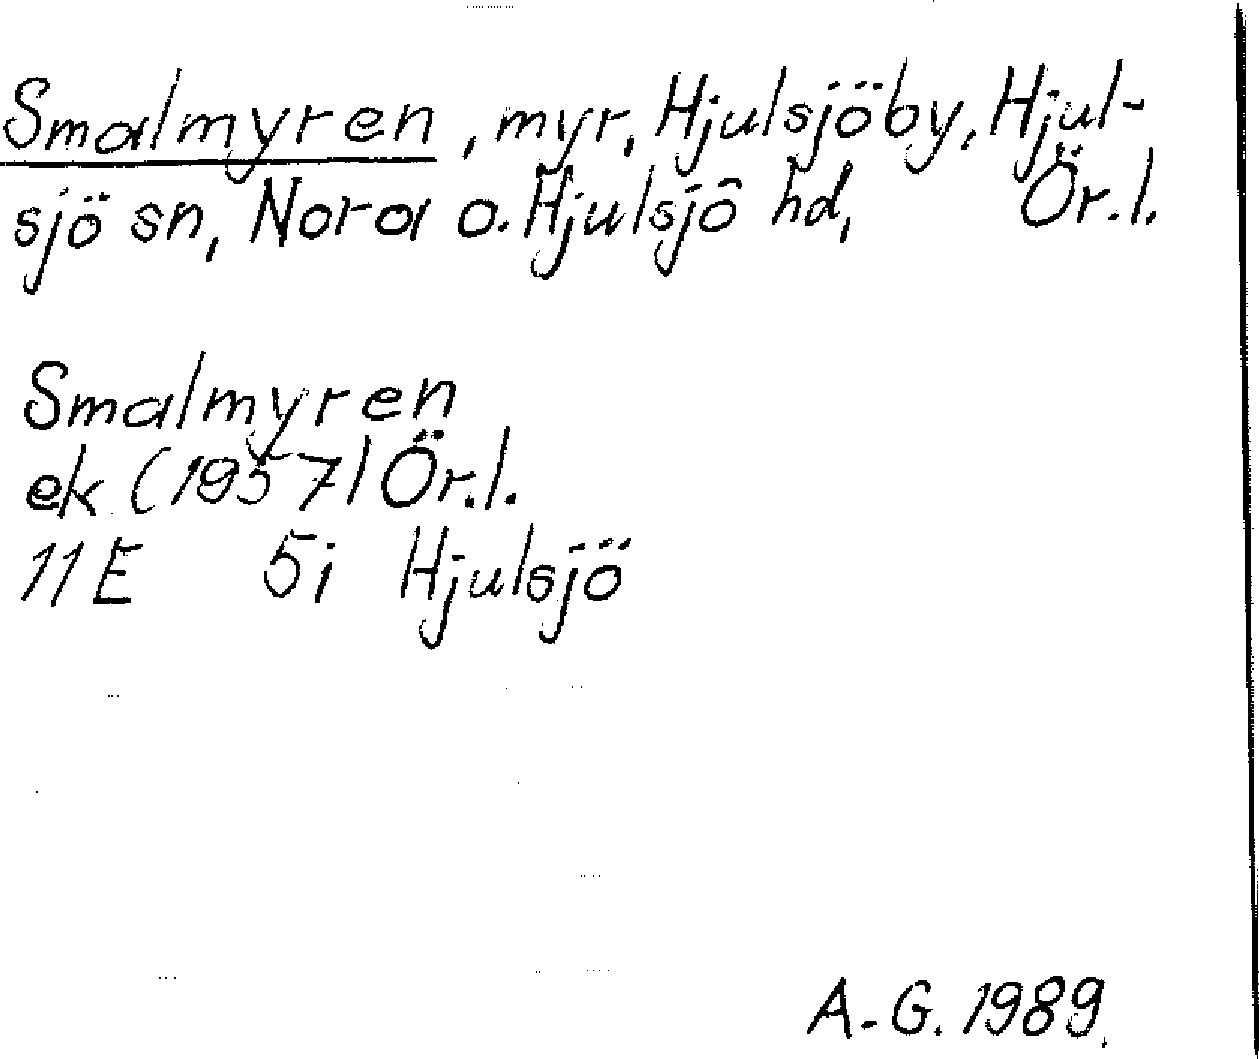 Smalmyren, myr, Hjulsjöby, Hjul-
sjö sn, Nora o. Hjulsjö hd, Ör.l.
Smalmyren
ek (1957) Ör.l.
11E 5i Hjulsjö
A.-G. 1989.